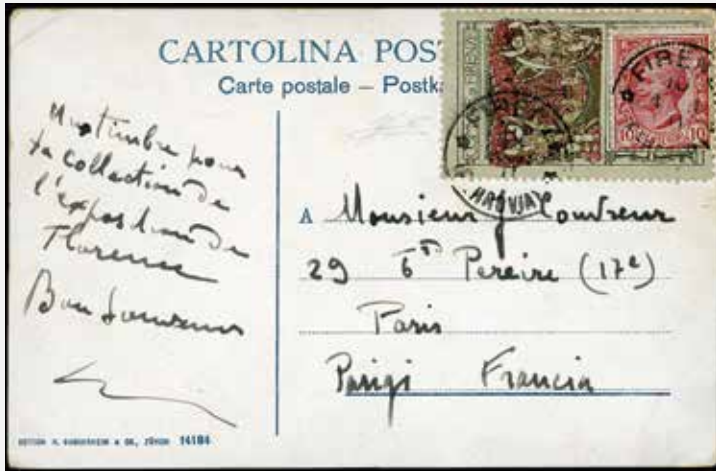 CARTOLINA POST
Carte postale – Postka
FIRENZE
FIREN
10 10
Un timbre pour
ta collection de
l'exposition de
Florence
Bon Souvenir
A Monsieur
29 Bd Pereire (17e)
Paris
Parigi Francia
ZÜRICH 14184